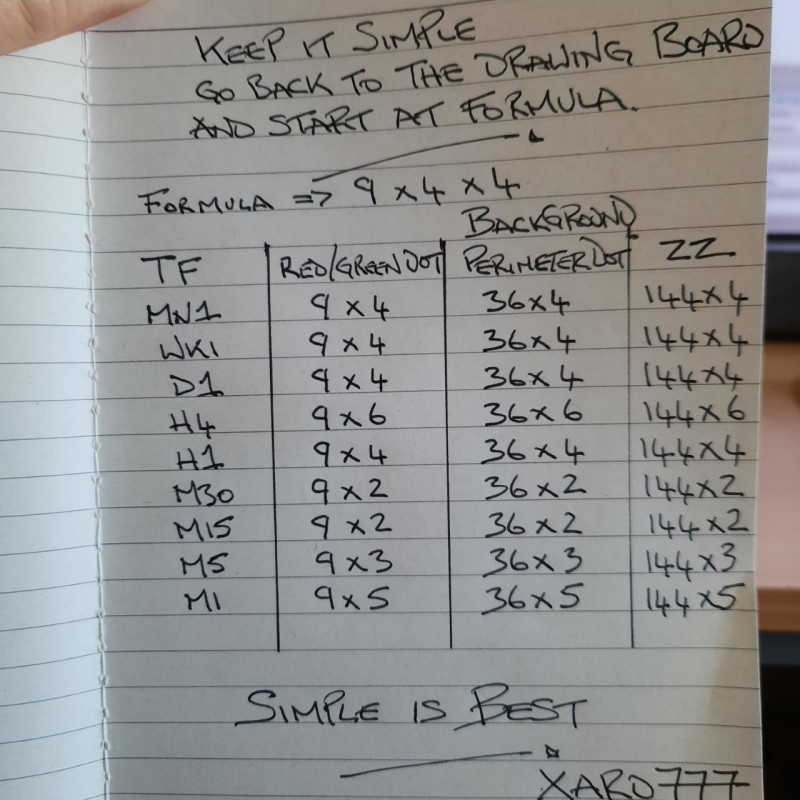 KEEP IT SIMPLE
GO BACK TO THE DRAWING BOARD
AND START AT FORMULA.
FORMULA => 9 x 4 x 4
BACKGROUND
TF RED/GREEN DOT PERIMETER DOT ZZ
MN1 9 x 4 36x4 144x4
WK1 9 x 4 36x4 144x4
D1 9 x 4 36x4 144x4
H4 9 x 6 36x6 144x6
H1 9 x 4 36x4 144x4
M30 9 x 2 36x2 144x2
M15 9 x 2 36x2 144x2
M5 9 x 3 36x3 144x3
M1 9 x 5 36x5 144x5
SIMPLE IS BEST
XARD777